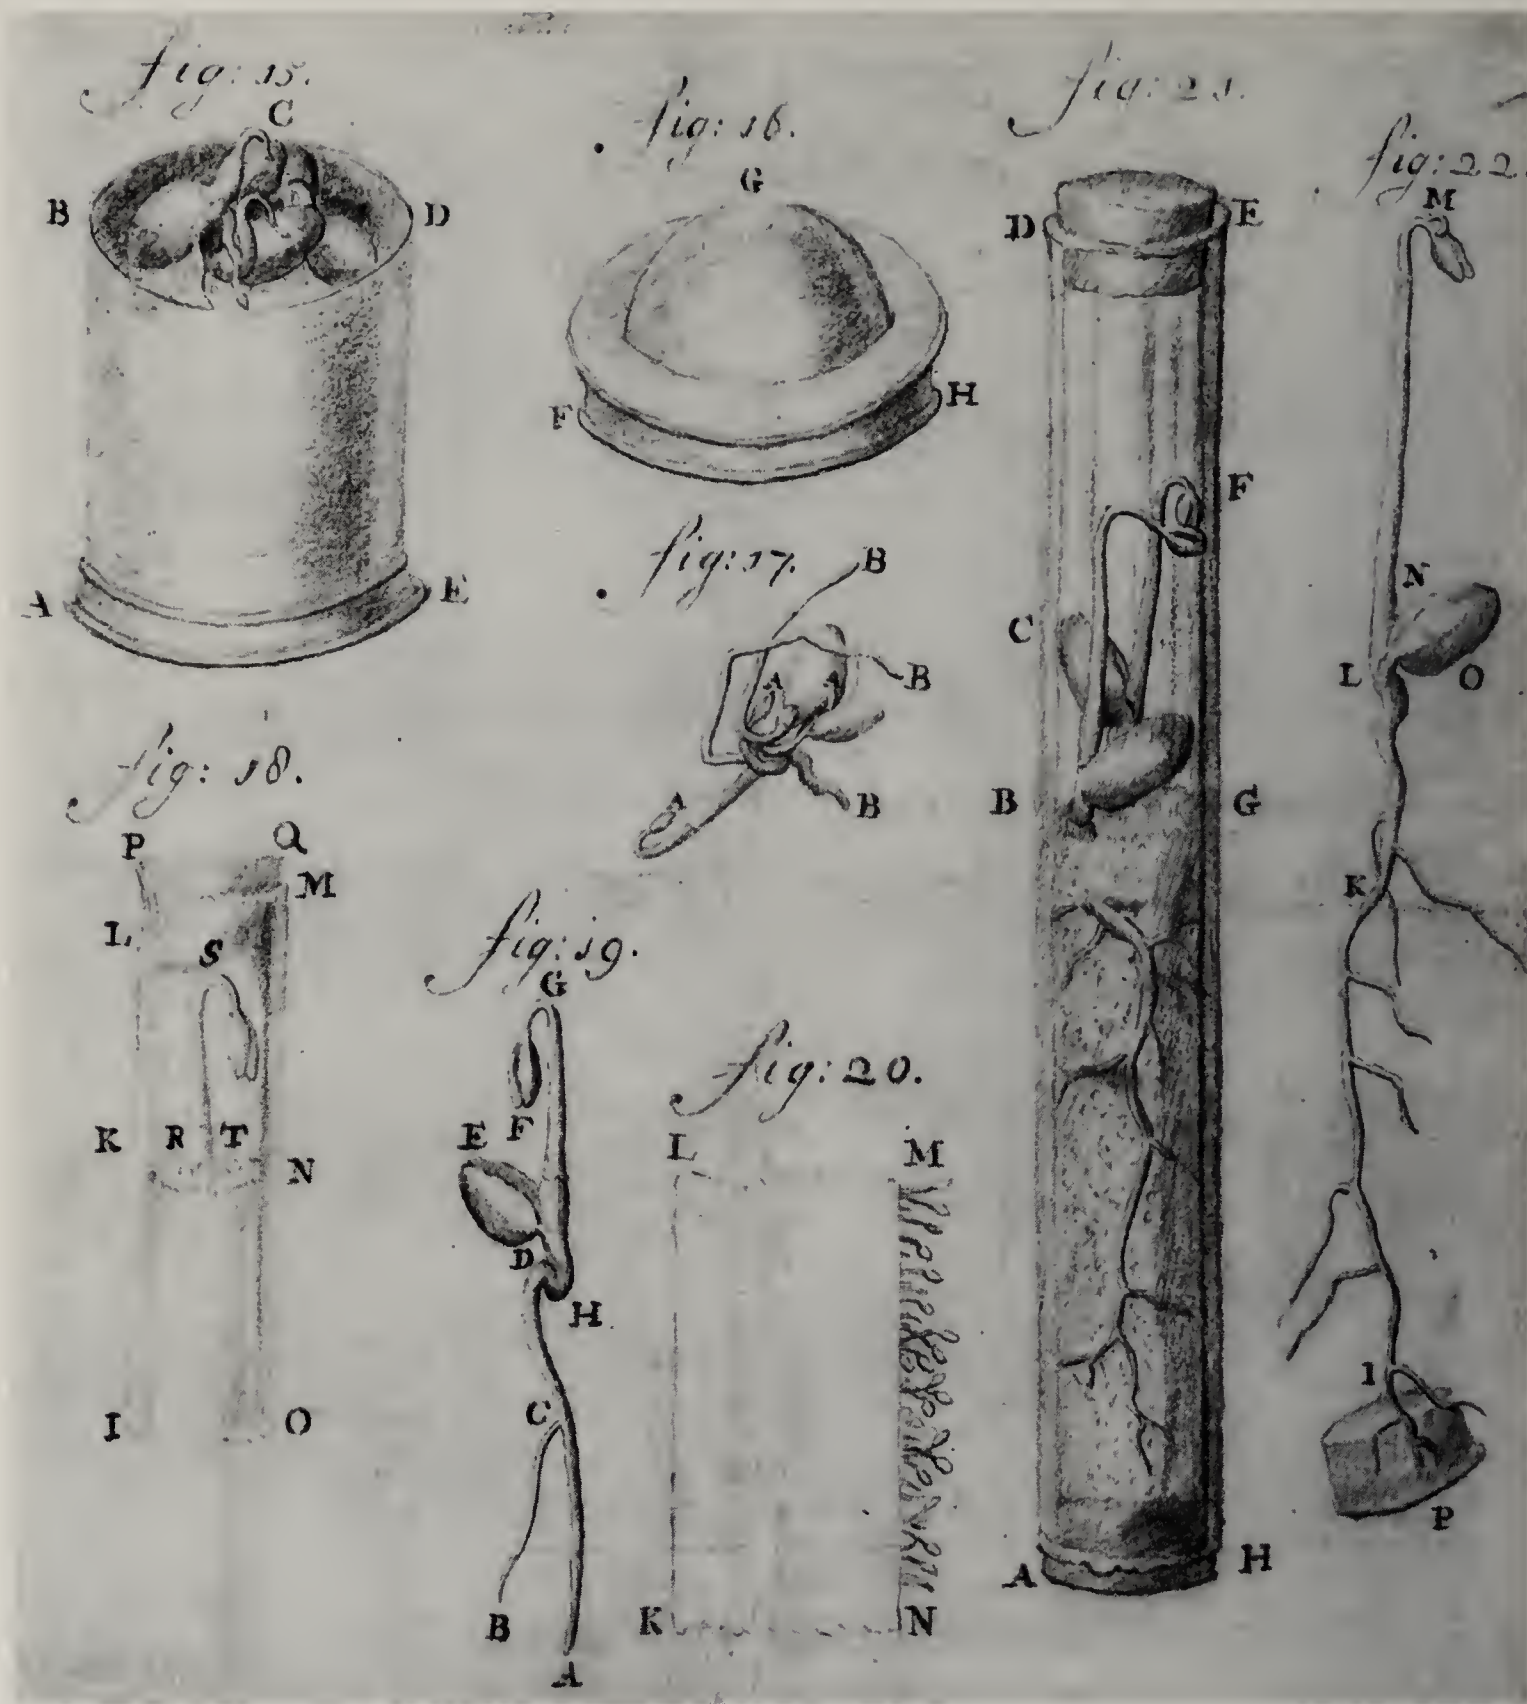 fig: 15.
C
B
D
A
E
fig: 16.
G
F
H
fig: 17.
B
A
A
B
A
B
fig: 18.
P
Q
M
L
S
K
R
T
N
I
O
fig: 19.
G
F
E
D
H
C
B
A
fig: 20.
L
M
K
N
fig: 21.
D
E
F
C
B
G
A
H
fig: 22.
M
N
L
O
K
I
P